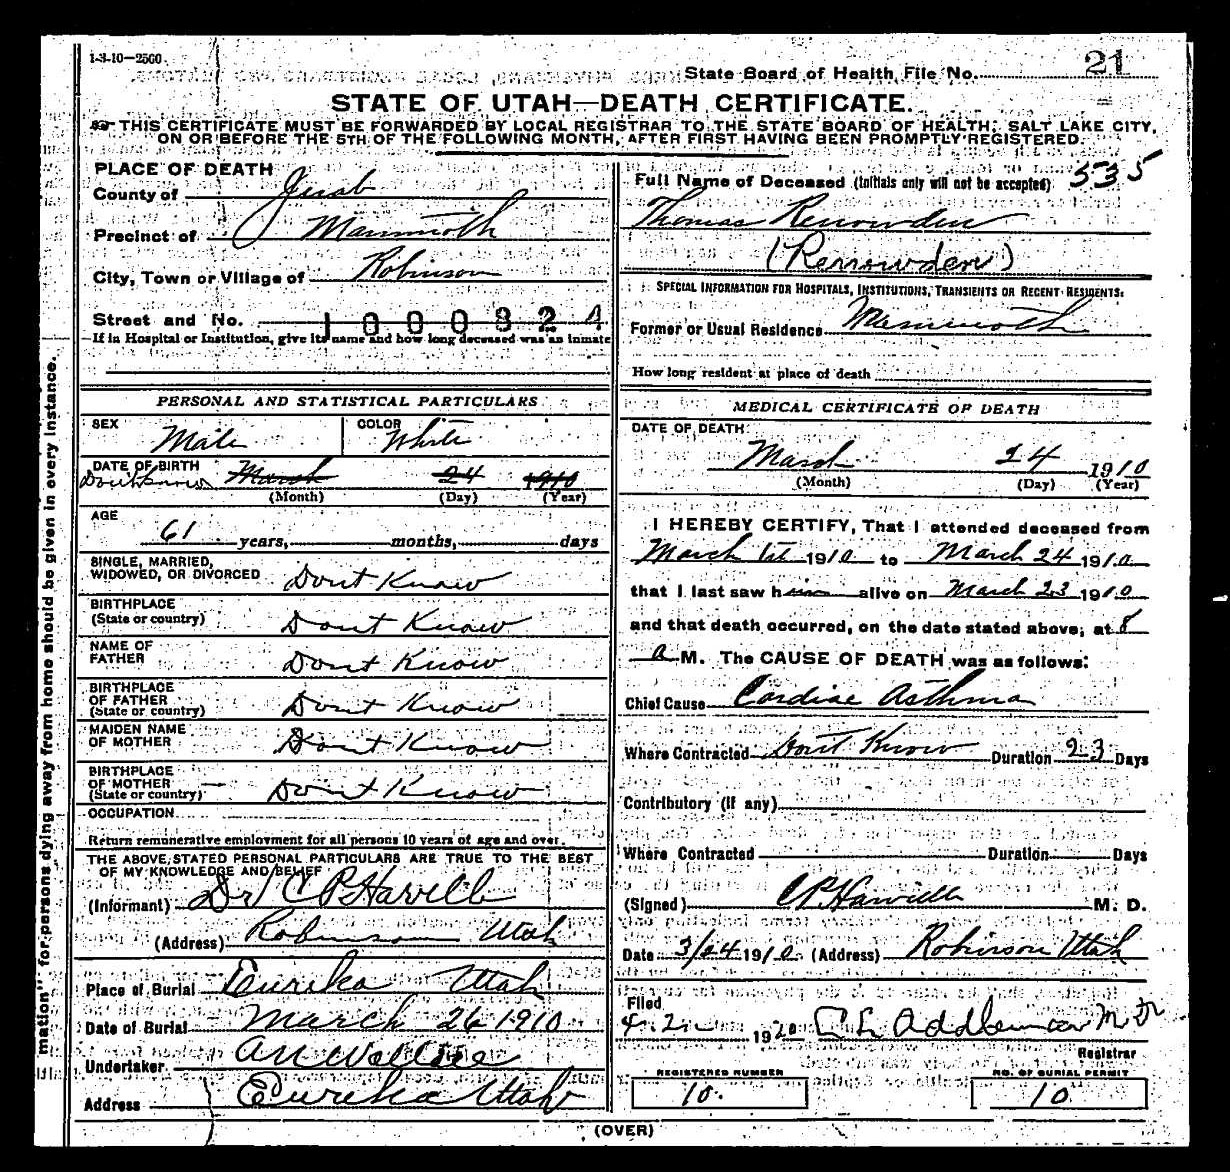 1-3-10—2500.
State Board of Health File No. 21
STATE OF UTAH—DEATH CERTIFICATE.
THIS CERTIFICATE MUST BE FORWARDED BY LOCAL REGISTRAR TO THE STATE BOARD OF HEALTH, SALT LAKE CITY,
ON OR BEFORE THE 5TH OF THE FOLLOWING MONTH, AFTER FIRST HAVING BEEN PROMPTLY REGISTERED.
PLACE OF DEATH
County of Juab
Precinct of Mammoth
City, Town or Village of Robinson
Street and No. 1000824
If in Hospital or Institution, give its name and how long deceased was an inmate
PERSONAL AND STATISTICAL PARTICULARS
SEX Male COLOR White
DATE OF BIRTH
Dont Know March 24 1910
(Month) (Day) (Year)
AGE
61 years, months, days
SINGLE, MARRIED,
WIDOWED, OR DIVORCED Dont Know
BIRTHPLACE
(State or country) Dont Know
NAME OF
FATHER Dont Know
BIRTHPLACE
OF FATHER
(State or country) Dont Know
MAIDEN NAME
OF MOTHER Dont Know
BIRTHPLACE
OF MOTHER
(State or country) Dont Know
OCCUPATION
Return remunerative employment for all persons 10 years of age and over.
THE ABOVE STATED PERSONAL PARTICULARS ARE TRUE TO THE BEST
OF MY KNOWLEDGE AND BELIEF
(Informant) Dr C P Harvell
(Address) Robinson Utah
Place of Burial Eureka Utah
Date of Burial March 26 1910
Undertaker
Address Eureka Utah
Full Name of Deceased (Initials only will not be accepted) 535
Thomas Renowden
(Renowden)
SPECIAL INFORMATION FOR HOSPITALS, INSTITUTIONS, TRANSIENTS OR RECENT RESIDENTS:
Former or Usual Residence Mammoth
How long resident at place of death
MEDICAL CERTIFICATE OF DEATH
DATE OF DEATH:
March 24 1910
(Month) (Day) (Year)
I HEREBY CERTIFY, That I attended deceased from
March 1st 1910 to March 24 1910
that I last saw him alive on March 23 1910
and that death occurred, on the date stated above, at 8
a M. The CAUSE OF DEATH was as follows:
Chief Cause Cardiac Asthma
Where Contracted Dont Know Duration 23 Days
Contributory (if any)
Where Contracted Duration Days
(Signed) C P Harvell M. D.
Date 3/24 1910 (Address) Robinson Utah
Filed
Registrar
REGISTERED NUMBER
10.
NO. OF BURIAL PERMIT
10
(OVER)
mation" for persons dying away from home should be given in every instance.